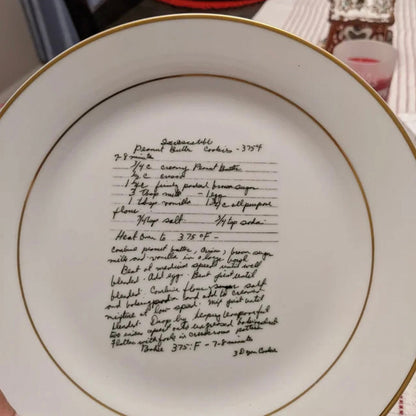 Irresistible
Peanut Butter Cookies - 375°F
7-8 minute
3/4 c creamy Peanut Butter
1/2 c crisco
1 1/4 c firmly packed brown sugar
3 tbsp milk - 1 egg
1 tbsp vanilla 1 3/4 c all purpose
flour
3/4 tsp salt 3/4 tsp soda
Heat Oven to 375°F -
Combine peanut butter, crisco, brown sugar
milk and vanilla in a large bowl
Beat at medium speed until well
blended. Add egg. Beat just until
blended. Combine flour salt
and baking and add to creamed
mixture at low speed. Mix just until
blended. Drop by heaping teaspoonful
two inches apart onto ungreased
Flatten with fork in crisscross pattern
Bake 375°F - 7-8 minutes
3 Dozen Cookies